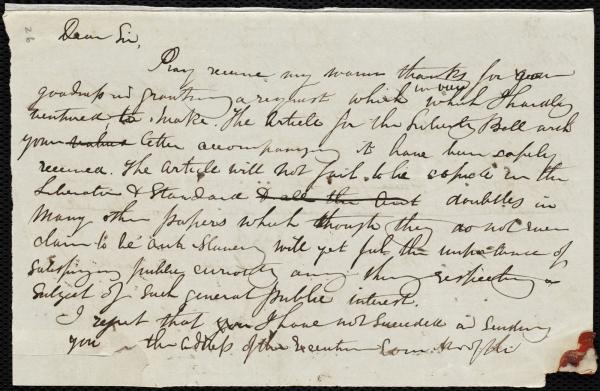 26
Dear Sir,
Pray receive my warm thanks for your
goodness in granting a request which
in very
which I hardly
ventured to make. The Article for the Liberty Bell and
your valued letter accompanying it have been safely
received. The Article will not fail to be copied in the
Liberator & Standard & all the Ant doubtless in
Many other papers which though they do not even
claim to be Anti Slavery will yet feel the importance of
satisfying public curiosity any thing respecting a
Subject of such general public interest.
I regret that you I have not succeeded in sending
you the address of the Executive Com.